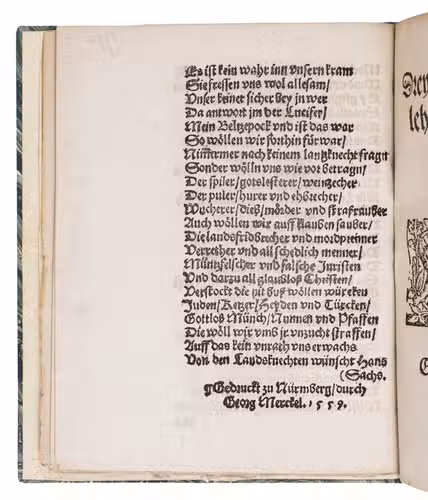 Es ist kein wahr inn vnsern kram
Sie fressen vns wol allesam/
Vnser keiner sicher bey jn wer
Da antwort jm der Lucifer/
Mein Beltzepock vnd ist das war
So wöllen wir forthin fürwar/
Nim̃ermer nach keinem lantzknecht fragn
Sonder wölln vns wie vor betragn/
Der spiler/gotslesterer/weinzecher
Der puler/hurer vnd ehbrecher/
Wucherer/dieb/mörder vnd strasrauber
Auch wöllen wir auff klauben sauber/
Die landsfridbrecher vnd mordprenner
Verrether vnd all schedlich menner/
Müntzfelscher vnd falsche Juristen
Vnd darzu all glaubloß Christen/
Verstockt die nit buß wöllen würcken
Juden/Ketzer/Heyden vnd Türcken/
Gottloß Münch/Nunnen vnd Pfaffen
Die wöll wir vmb jr vnzucht straffen/
Auff das kein vnrath vns erwachs
Von den Landsknechten wünscht Hans
(Sachs.
Gedruckt zu Nürmberg/durch
Georg Merckel. 1559.